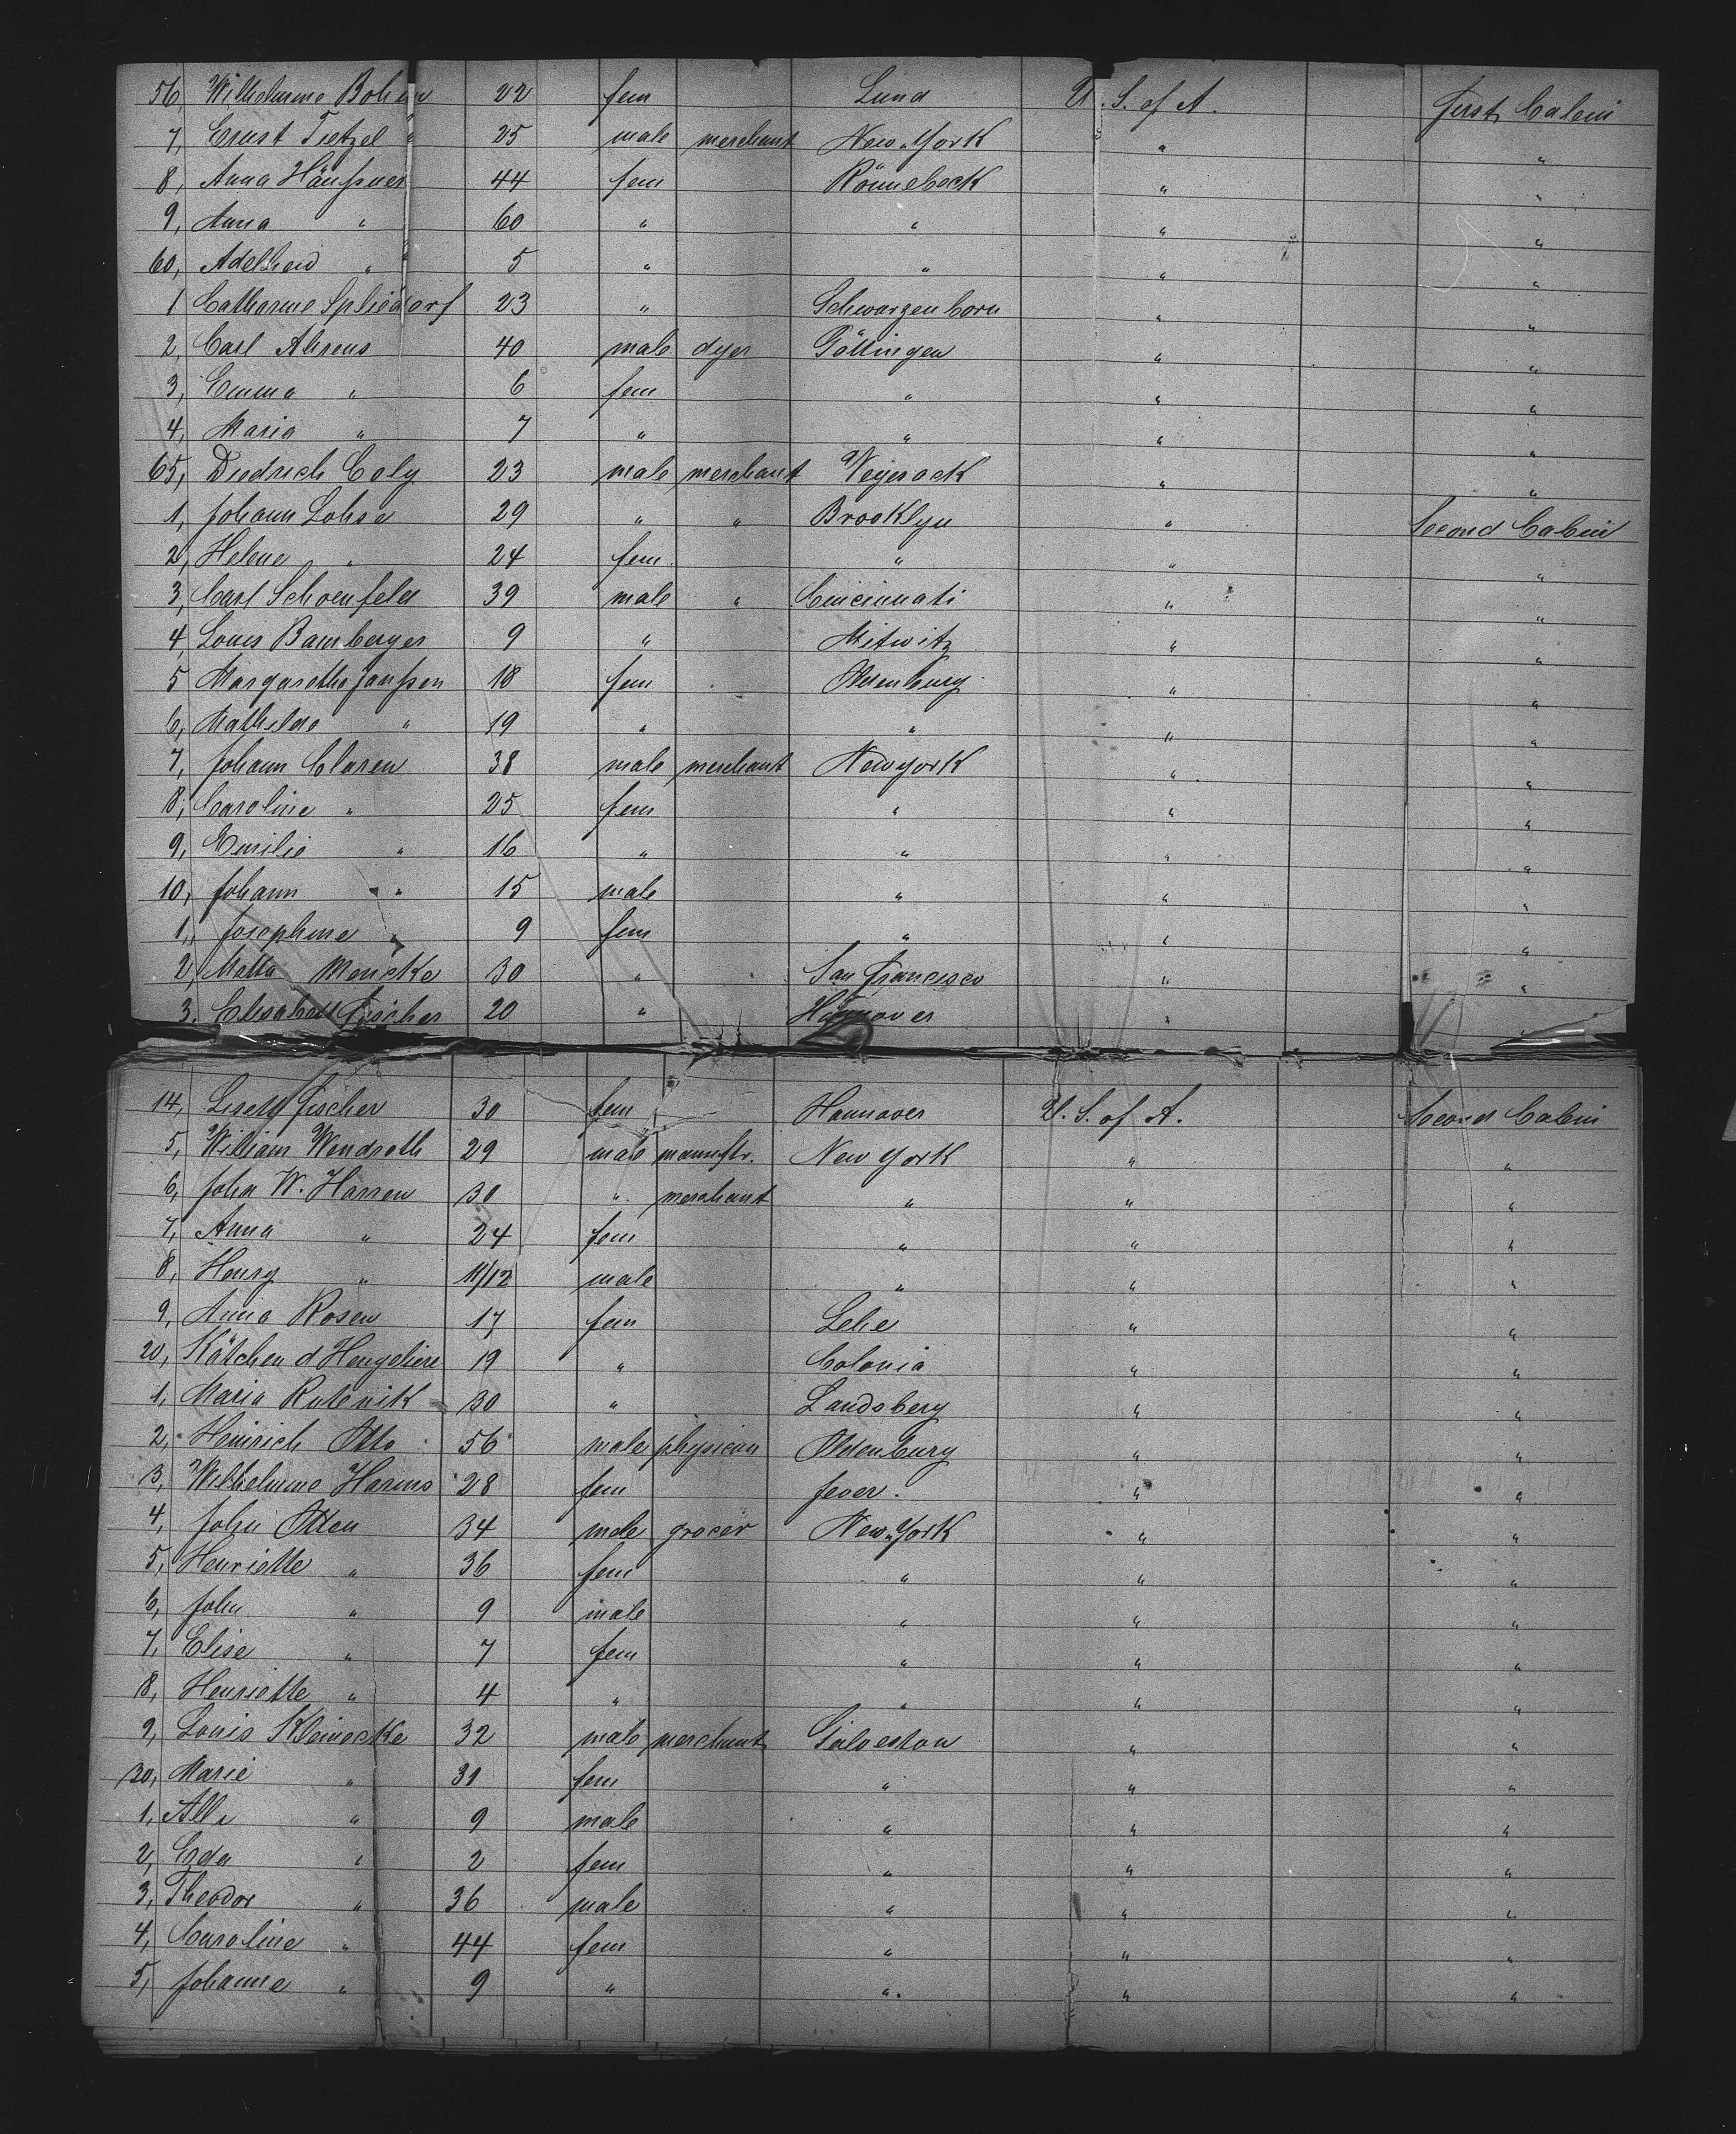 56, Wilhelmine Bohm 22 fem Lund U. S. of A. first Cabin
7, Ernst Tietzel 25 male merchant New-York " "
8, Anna Häußner 44 fem Rönnebeck " "
9, Anna " 60 " " " "
60, Adelheid " 5 " " " "
1 Catharine Spliedorf 23 " Schwarzenborn " "
2, Carl Ahrens 40 male dyer Göttingen " "
3, Emma " 6 fem " " "
4, Maria " 7 " " " "
65, Diedrich Coly 23 male merchant Vegesack " "
1, Johann Lohse 29 " " Brooklyn " Second Cabin
2, Helene " 24 fem " " "
3, Carl Schoenfeld 39 male " Cincinnati " "
4, Louis Bamberger 9 " Mitwitz " "
5 Margarethe Janßen 18 fem Oldenburg " "
6, Mathilde " 19 " " " "
7, Johann Claren 38 male merchant Newyork " "
8, Caroline " 25 fem " " "
9, Emilie " 16 " " " "
10, Johann " 15 male " " "
1, Josephine " 9 fem " " "
2, Metta Mencke 30 " San Francisco " "
3. Elisabeth Fischer 20 " Hannover " "
14, Lisett Fischer 30 fem Hannover U. S. of A. Second Cabin
5, William Wendroth 29 male manuftr. New York " "
6, John W. Harren 30 " merchant " " "
7, Anna " 24 fem " " "
8, Henry " 11/12 male " " "
9, Anna Rosen 17 fem Lehe " "
20, Kätchen d Hengeliere 19 " Colonia " "
1, Maria Rutenik 30 " Landsberg " "
2, Heinrich Otto 56 male physician Oldenburg " "
3, Wilhelmine Harms 28 fem Jever. " "
4, John Otten 34 male grocer New-York " "
5, Henriette " 36 fem " " "
6, John " 9 male " " "
7, Elise " 7 fem " " "
8, Henriette " 4 " " " "
9, Louis Kleinecke 32 male merchant Galveston " "
30, Marie " 31 fem " " "
1, " 9 male " " "
2, Erda " 2 fem " " "
3, Theodor " 36 male " " "
4, Caroline " 44 fem " " "
5, Johanne " 9 " " " "